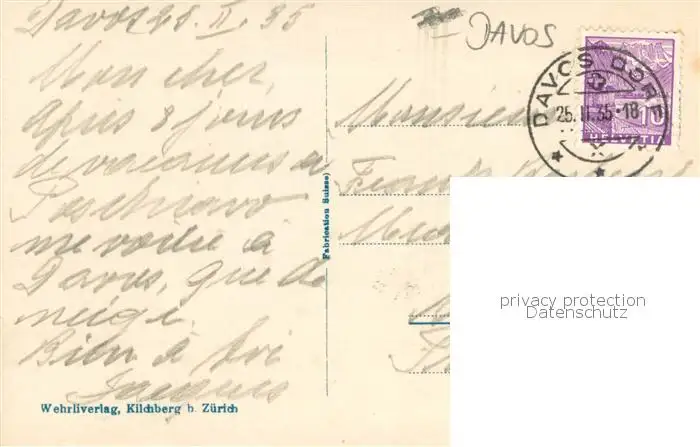 Davos 25 II 35
Mon cher,
Après 8 jours
de vacances à
Poschiavo
me voilà à
Davos, que de
neige.
Bien à toi
Jacques
Wehrliverlag, Kilchberg b. Zürich
Fabrication Suisse
DAVOS
Monsieur
DAVOS DORF
25. II. 35-18
10
HELVETIA
privacy protection
Datenschutz